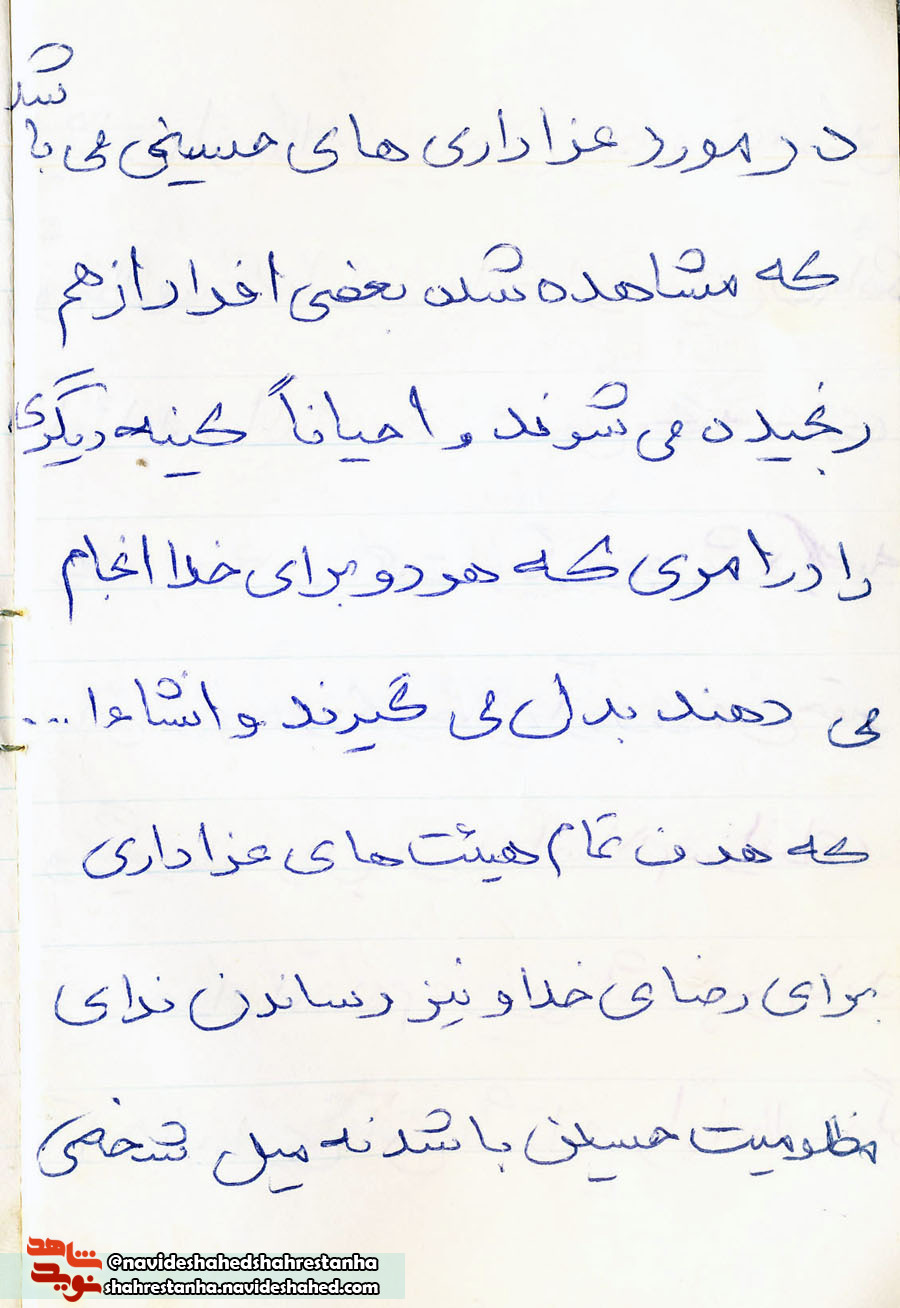 در مورد عزاداری های حسینی می باشد
که مشاهده شده بعضی افراد از هم
رنجیده می شوند و احیاناً کینه دیگری
را در امری که هر دو برای خدا انجام
می دهند بدل می گیرند و انشاءا ...
که هدف تمام هیئت های عزاداری
برای رضای خدا و نیز رساندن ندای
مظلومیت حسین باشد نه میل شخصی
شاهد
نوید
©navideshahedshahrestanha
shahrestanha.navideshahed.com